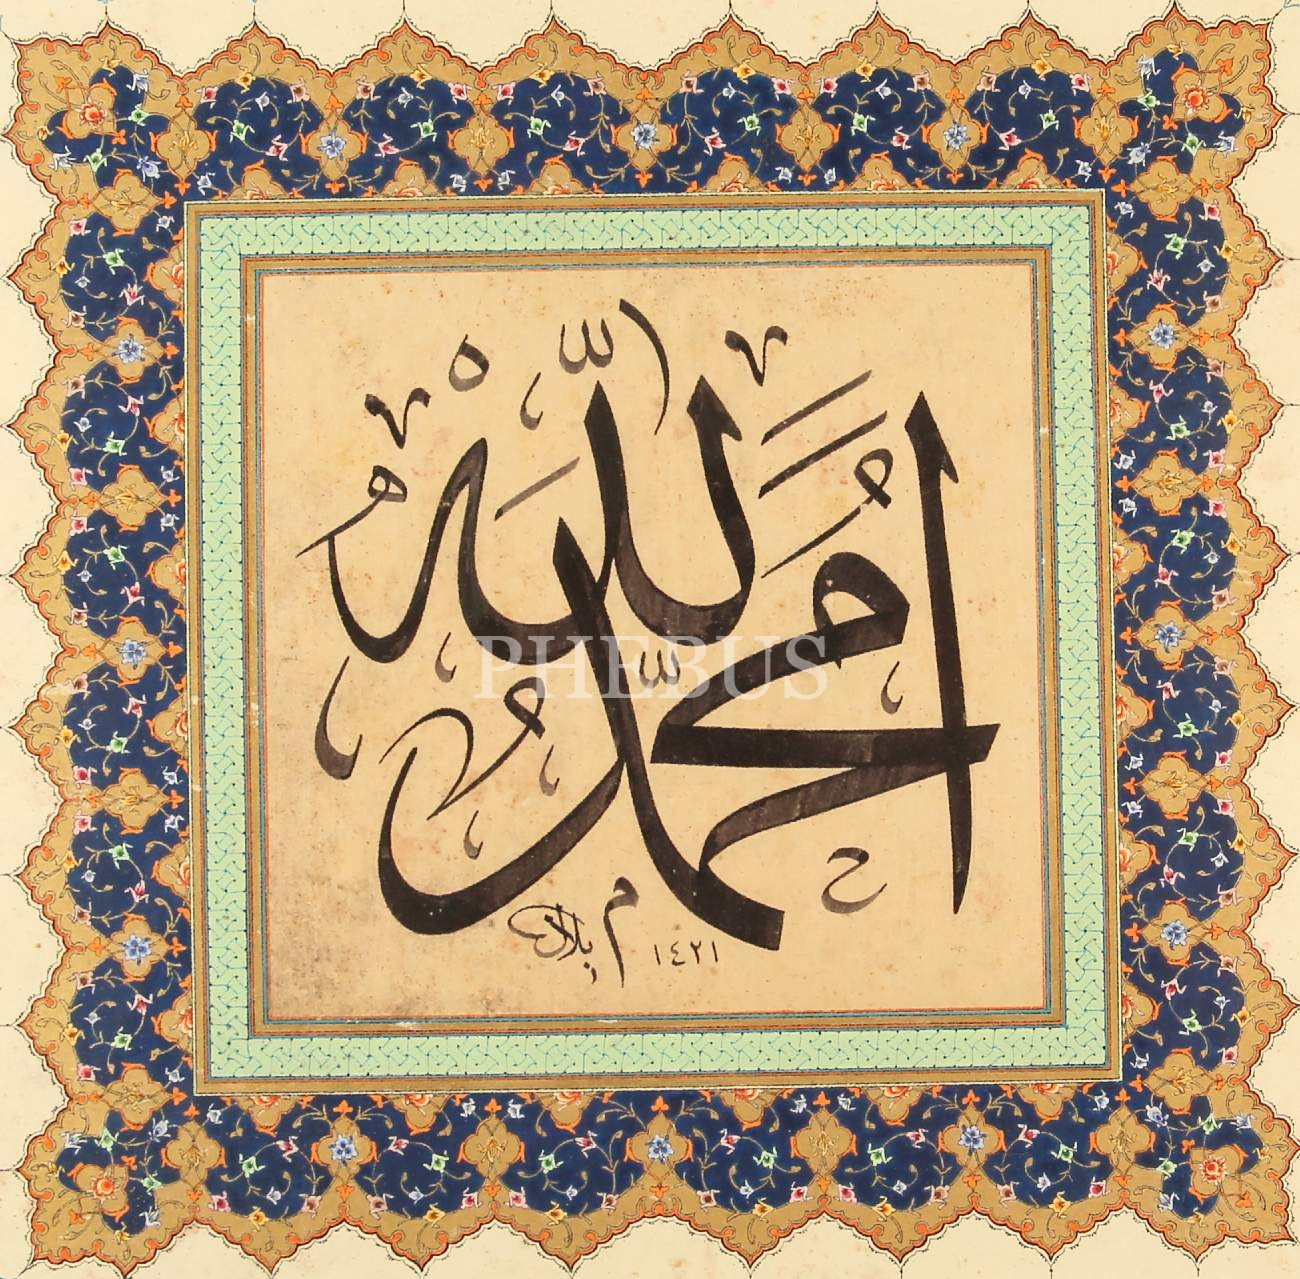 الله
محمد
PHEBUS
بلال م ١٤٢١